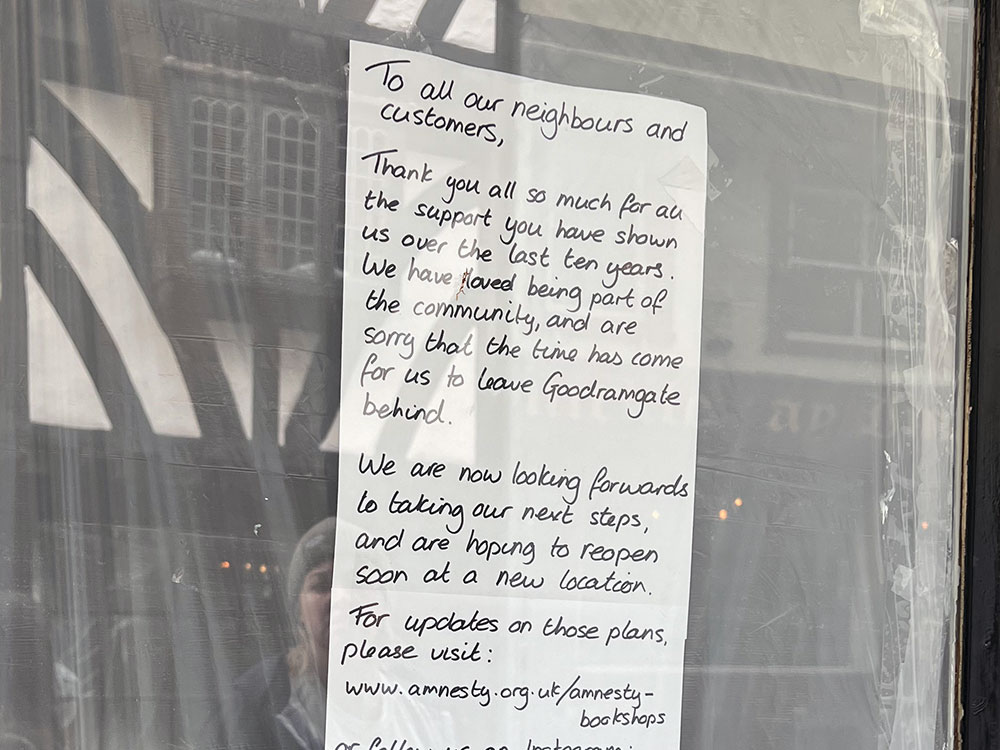 To all our neighbours and
customers,
Thank you all so much for all
the support you have shown
us over the last ten years.
We have loved being part of
the community, and are
sorry that the time has come
for us to leave Goodramgate
behind.
We are now looking forwards
to taking our next steps,
and are hoping to reopen
soon at a new location.
For updates on those plans,
please visit:
www.amnesty.org.uk/amnesty-
bookshops
or follow us on Instagram: